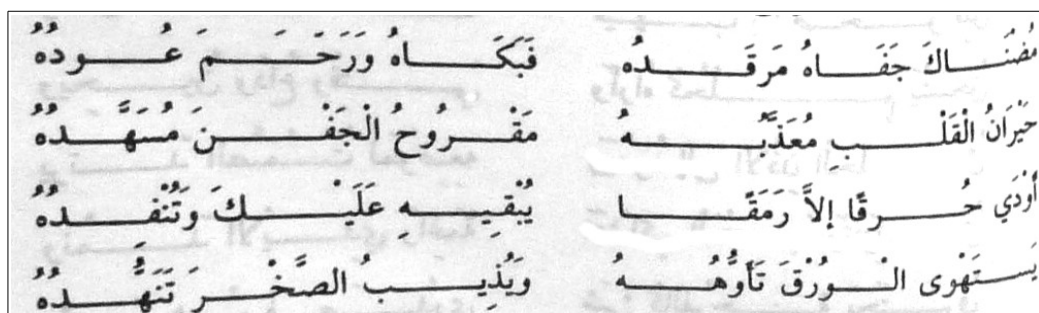 مُضْنَاكَ جَفَاهُ مَرقَدُهُ فَبَكَاهُ وَرَحَّمَ عُودُهُ
حَيْرَانُ الْقَلْبِ مُعَذَّبُهُ مَقْرُوحُ الْجَفْنَ مُسَهَّدُهُ
أَوْدَي حُرقًا إلاَّ رَمَقًا يُبْقِيهِ عَلَيْكَ وَتُنْفِدُهُ
يَستَهْوى الْوُرْقَ تَأَوُّهُهُ وَيُذِيبُ الصَّخْرَ تَنَهُّدُهُ